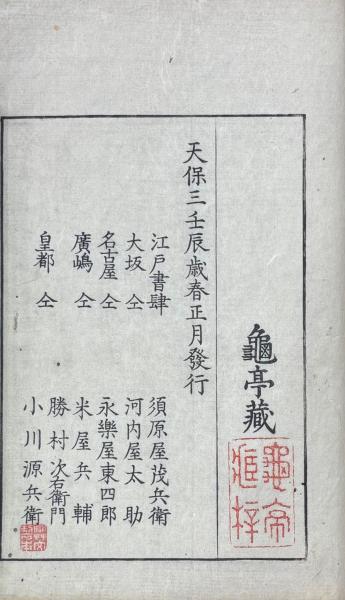 龜亭藏
龜亭
藏梓
天保三壬辰歲春正月發行
江戸書肆 須原屋茂兵衛
大坂 仝 河内屋太助
名古屋 仝 永樂屋東四郎
廣嶋 仝 米屋兵輔
皇都 仝 勝村次右衛門
小川源兵衛